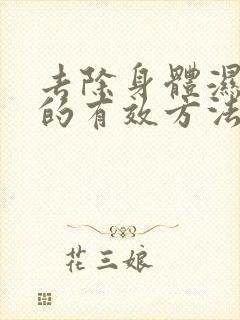 去除身體濕
的有效方法
花三娘